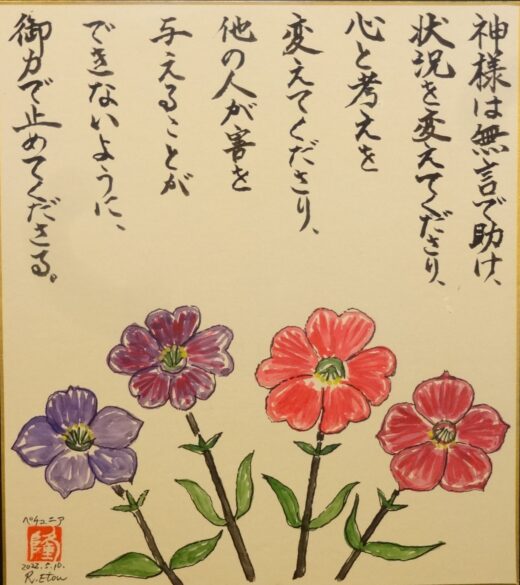 神様は無言で助け、
状況を変えてくださり、
心と考えを
変えてくださり、
他の人が害を
与えることが
できないように、
御力で止めてくださる。
ペチュニア
隆
2022.5.10.
R.Etou